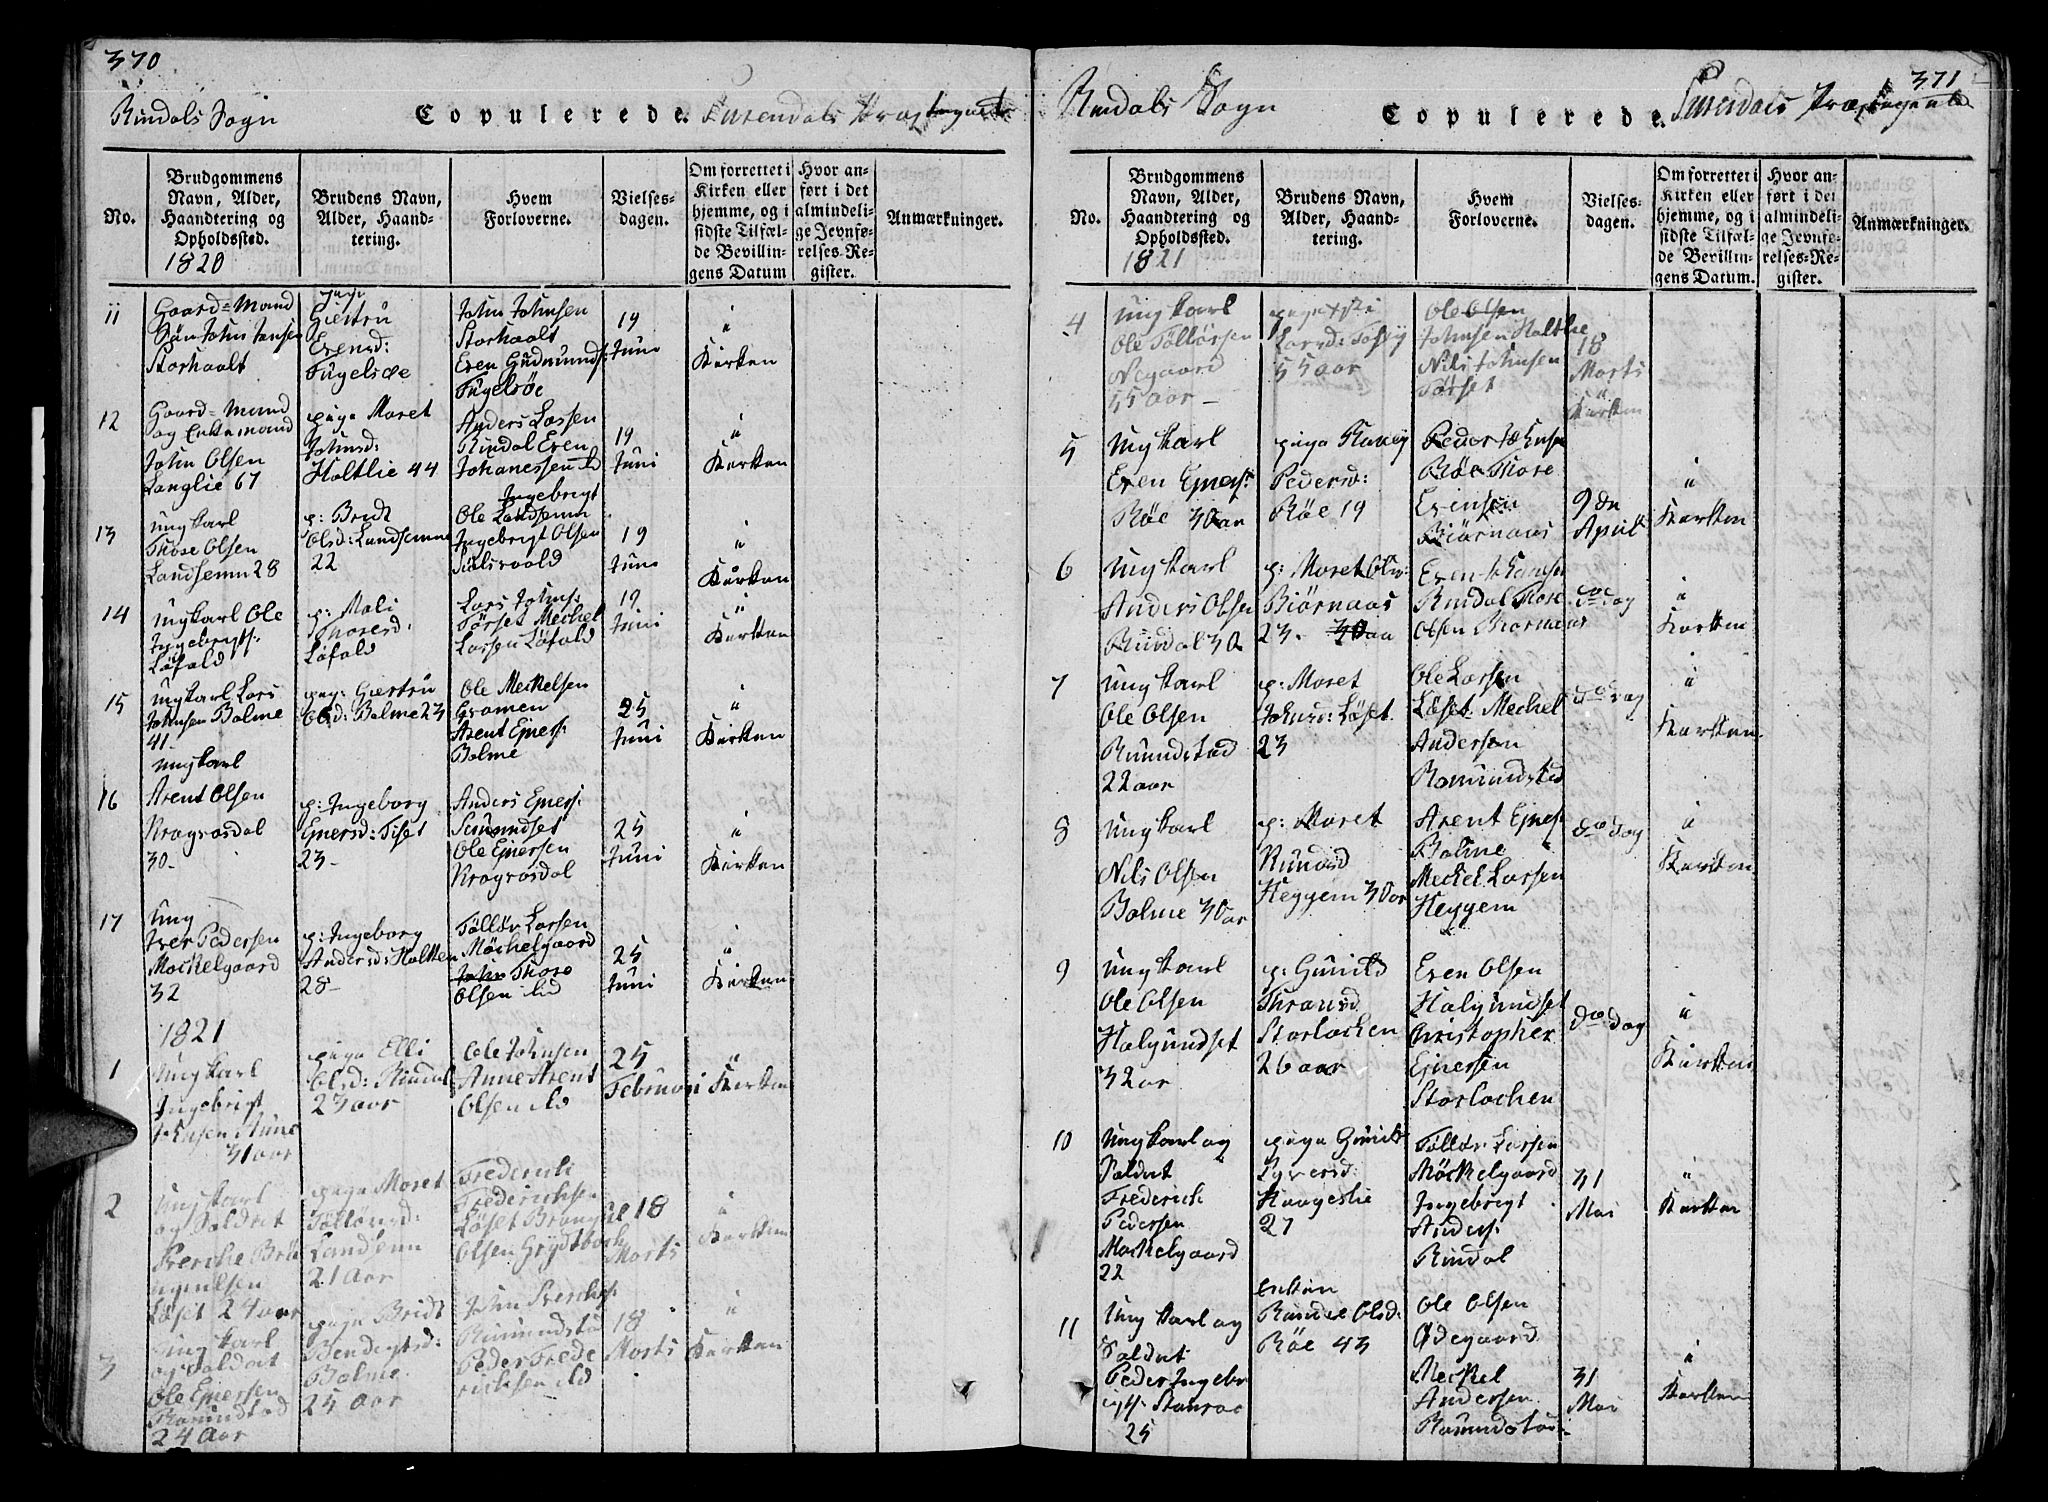 370
Rindals Sogn
Copulerede.
Surendals Præstegield
No.
Brudgommens
Navn, Alder,
Haandtering og
Opholdssted.
1820
Brudens Navn,
Alder, Haand-
tering.
Hvem
Forloverne.
Vielses-
dagen.
Om forrettet i
Kirken eller
hjemme, og i
sidste Tilfæl-
de Bevillin-
gens Datum
Hvor an-
ført i det
almindeli-
ge Jevnfø-
relses-Re-
gister.
Anmærkninger.
11
Gaard=Mand
John
Storhaalt
Giertru
Evensd:
Fugelsøe
John Johnsen
Storhaalt
Even Gudmunds:
Fugelsøe
19
Juni
"
Kirken
12
Gaard=Mand
og Enkemand
John Olsen
Langlie 67
piga Maret
Johnsd:
Holtlie 44
Anders Larsen
Rindal Even
Johanessen ibd
19
Juni
"
Kirken
13
ungkarl
Thore Olsen
Landsemn 28
p: Bridt
Olsd: Landsemn
22
Ingebrigt
Ole Landsemn
Ingebrigt Olsen
19
Juni
"
Kirken
14
ungkarl Ole
Ingebrigts:
Løfald
p: Mali
Thoresd:
Løfald
Lars Johns:
Tørset Mechel
Larsen Løfald
19
Juni
"
Kirken
15
ungkarl Lars
Johnsen Bolme
41-
pig: Giertru
Olsd: Bolme 23
Ole Meckelsen
Gramen
Arent Ejners:
Bolme
25
Juni
"
Kirken
16
ungkarl
Arent Olsen
30-
p: Ingeborg
Ejnersd: Tiset
23-
Anders Ejners:
Ole Ejnersen
25
Juni
"
Kirken
17
Ung
Iver Pedersen
Mockelgaard
32
p: Ingeborg
Andersd: Holtten
28-
Tølløv Larsen
Møckelgaard
John Thore
Olsen ibd
25
Juni
"
Kirken
1821
1
Ungkarl
Ingebrigt
Johnsen Aune
31 aar
piga Elli
Olsd: Rindal
23 aar
Ole Johnsen
Aune Arent
Olsen ibd
25
Februari
"
Kirken
2
Ungkarl
og Soldat
Løset 24 aar
piga Maret
Tølløvsd:
Landsemn
21 Aar
Frederich
Frederichsen
Løset
Olsen Grydtboch
18
Marts
"
Kirken
3
ungkarl
og Soldat
Ole Ejnersen
Romundstad
24 Aar
piga Bridt
Bendigtsd:
Bolme
25 Aar
John
Romundstad
Peder Frede
richsen ibd
18
Marts
"
Kirken
371
Rindals Sogn
Copulerede.
Surendals Præstegield
No.
Brudgommens
Navn, Alder,
Haandtering og
Opholdssted.
1821
Brudens Navn,
Alder, Haand-
tering.
Hvem
Forloverne.
Vielses-
dagen.
Om forrettet i
Kirken eller
hjemme, og i
sidste Tilfæl-
de Bevillin-
gens Datum.
Hvor an-
ført i det
almindeli-
ge Jevnfø-
relses-Re-
gister.
Anmærkninger.
4
ungkarl
Ole Tølløvsen
Negaard
55 aar –
55 aar
Ole Olsen
Johnsen Holtlie
Nils Johnsen
Tørset
18
Marts
"
Kirken
5
Ungkarl
Even Ejners:
Røe 30 aar
piga
Pedersd:
Røe 19
Peder Johnsen
Røe Thore
Evensen
Biørnaas
9de
April
"
Kirken
6
Ungkarl
Anders Olsen
Rindal 30
p: Maret Olsd:
Biørnaas
23. 30 aar
Even Johansen
Rindal Thore
Olsen Biørnaas
do dag
"
Kirken
7
Ungkarl
Ole Olsen
Romundstad
22 aar
p: Maret
Johnsd: Løset
23
Ole Larsen
Løset Mechel
Andersen
Romundstad
do dag
"
Kirken
8
Ungkarl
Nils Olsen
Bolme 30 aar
p: Maret
Heggem 30 ar
Arent Ejners:
Bolme
Meckel Larsen
Heggem
do dag
"
Kirken
9
Ungkarl
Ole Olsen
Halgundset
32 ar
p: Gunild
Storlochen
26 aar
Even Olsen
Halgundset
Christopher
Ejnersen
Storlochen
do dag
"
Kirken
10
Ungkarl og
Soldat
Frederich
Pedersen
Mockelgaard
22
piga Gunild
Haugeslie
27
Tølløv Larsen
Møckelgaard
Ingebrigt
Anders:
Rindal
31
Mai
"
Kirken
11
Ungkarl og
Soldat
Peder Ingebr
25
Enken
Randi Olsd:
Røe 43
Ole Olsen
Ødegaard
Meckel
Andersen
Romundstad
31
Mai
"
Kirken